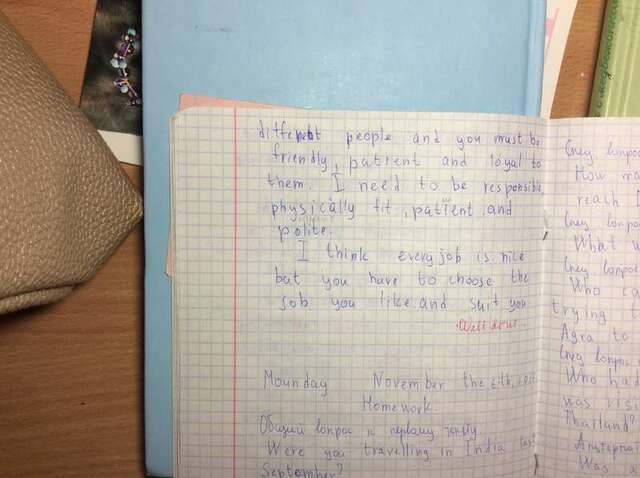 different people and you must be
friendly, patient and loyal to
them. I need to be responsible
physically fit, patient and
polite.
I think every job is nice
but you have to choose the
job you like and suit you
Well done.
Mounday November the 6th,
Homework.
Общий вопрос к первому
Were you travelling in India last
September?
How
reach
What
Who
trying
Agra to
Who had
was
Thailand?
Was a